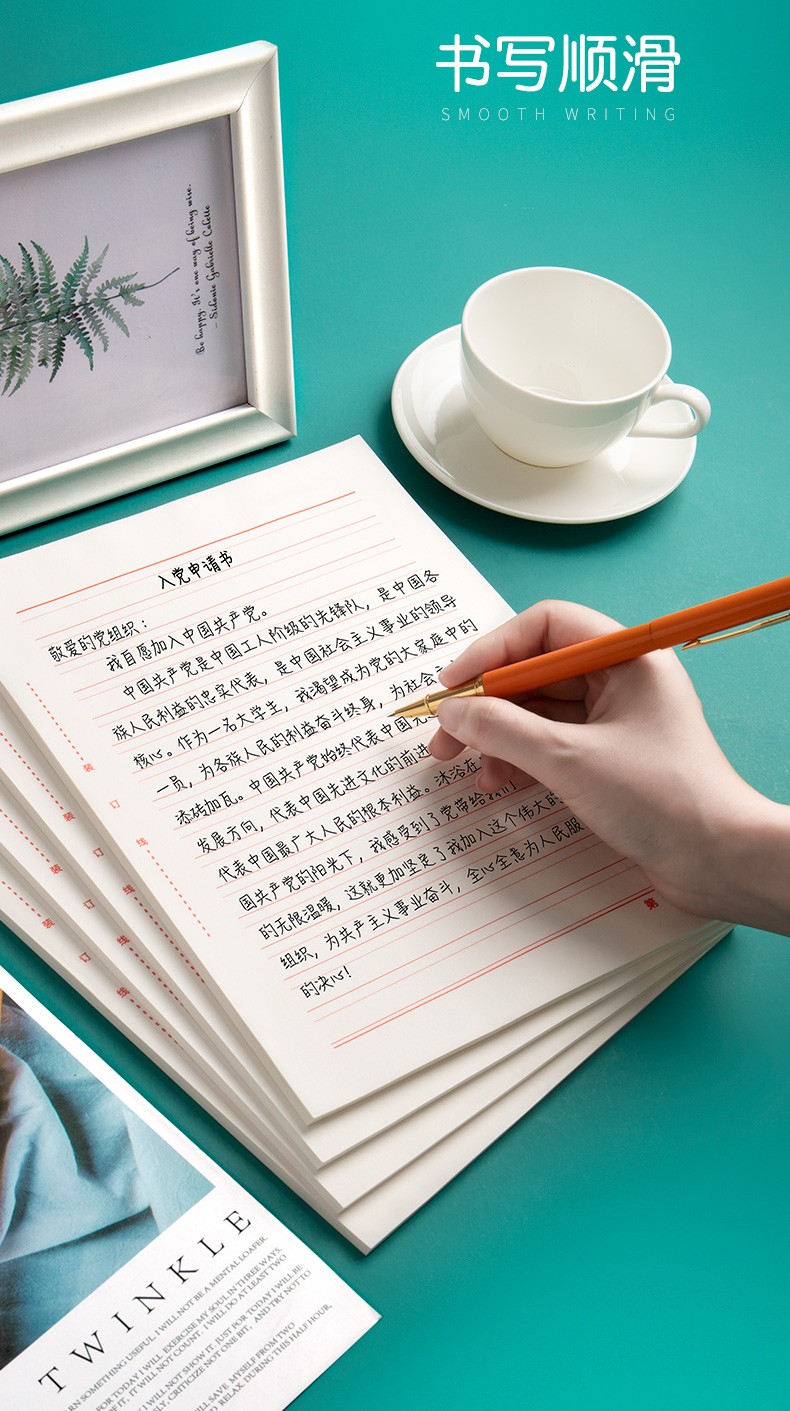 书写顺滑
SMOOTH WRITING
Be happy. It's one way of being wise.
– Sidonie Gabrielle Colette
入党申请书
敬爱的党组织：
我自愿加入中国共产党。
中国共产党是中国工人阶级的先锋队，是中国各
族人民利益的忠实代表，是中国社会主义事业的领导
核心。作为一名大学生，我渴望成为党的大家庭中的
一员，为各族人民的利益奋斗终身，为社会主
添砖加瓦。中国共产党始终代表中国先
发展方向，代表中国先进文化的前进
代表中国最广大人民的根本利益。沐浴在
国共产党的阳光下，我感受到了党带给我们
的无限温暖，这就更加坚定了我加入这个伟大的
组织，为共产主义事业奋斗，全心全意为人民服
的决心！
第
装
订
线
装
订
线
装
订
线
装
订
线
TWINKLE
RN SOMETHING USEFUL. I WILL NOT BE A MENTAL LOAFER.
FOR TODAY I WILL EXERCISE MY SOUL IN THREE WAYS.
OF IT. IT WILL NOT COUNT. I WILL DO AT LEAST TWO
I WILL NOT SHOW IT. JUST FOR TODAY I WILL BE
LY, CRITICIZE NOT ONE BIT, AND TRY NOT TO
WILL SAVE MYSELF FROM TWO
D RELAX. DURING THIS HALF HOUR,